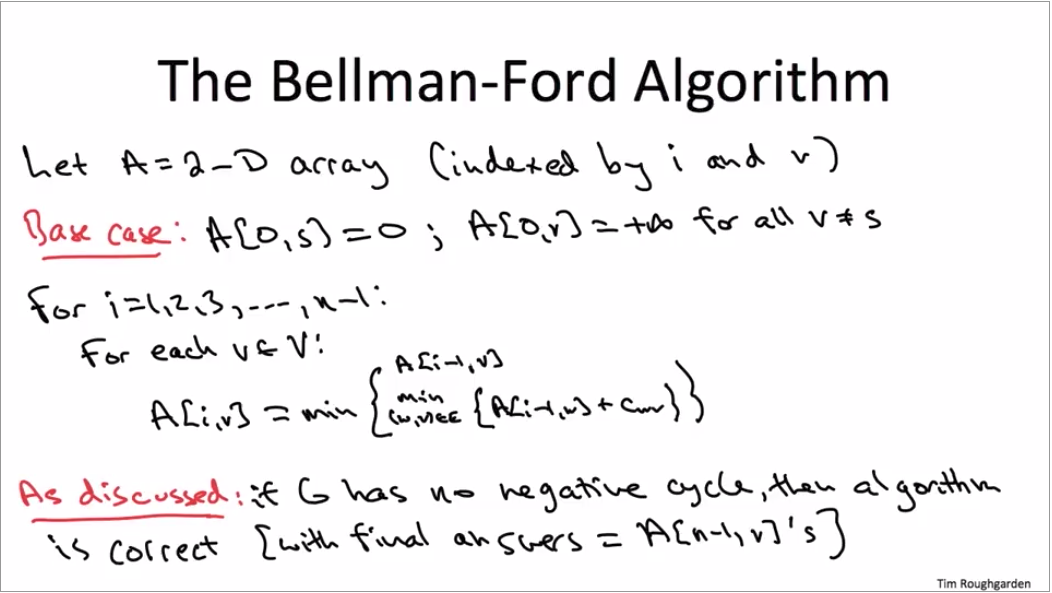 The Bellman-Ford Algorithm
Let A = 2-D array (indexed by i and v)
Base case: A[0,s] = 0 ; A[0,v] = +∞ for all v ≠ s
For i=1,2,3,...,n-1:
For each v ∈ V:
A[i,v] = min { A[i-1,v]
min (w,v)∈E {A[i-1,w] + Cwv} }
As discussed: if G has no negative cycle, then algorithm
is correct [with final answers = A[n-1,v]'s]
Tim Roughgarden